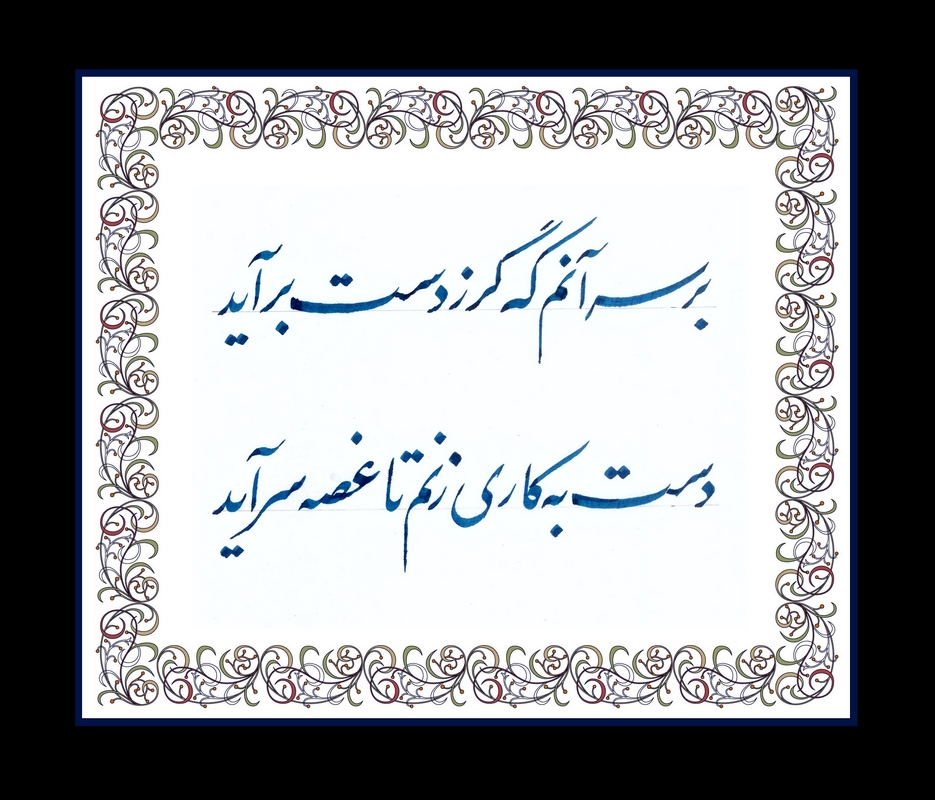 بر سر آنم که گر ز دست برآید
دست به کاری زنم تا غصه سرآید